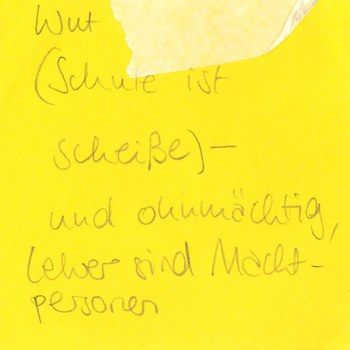 Wut
(Schule ist
scheiße) –
und ohnmächtig,
Lehrer sind Macht-
personen